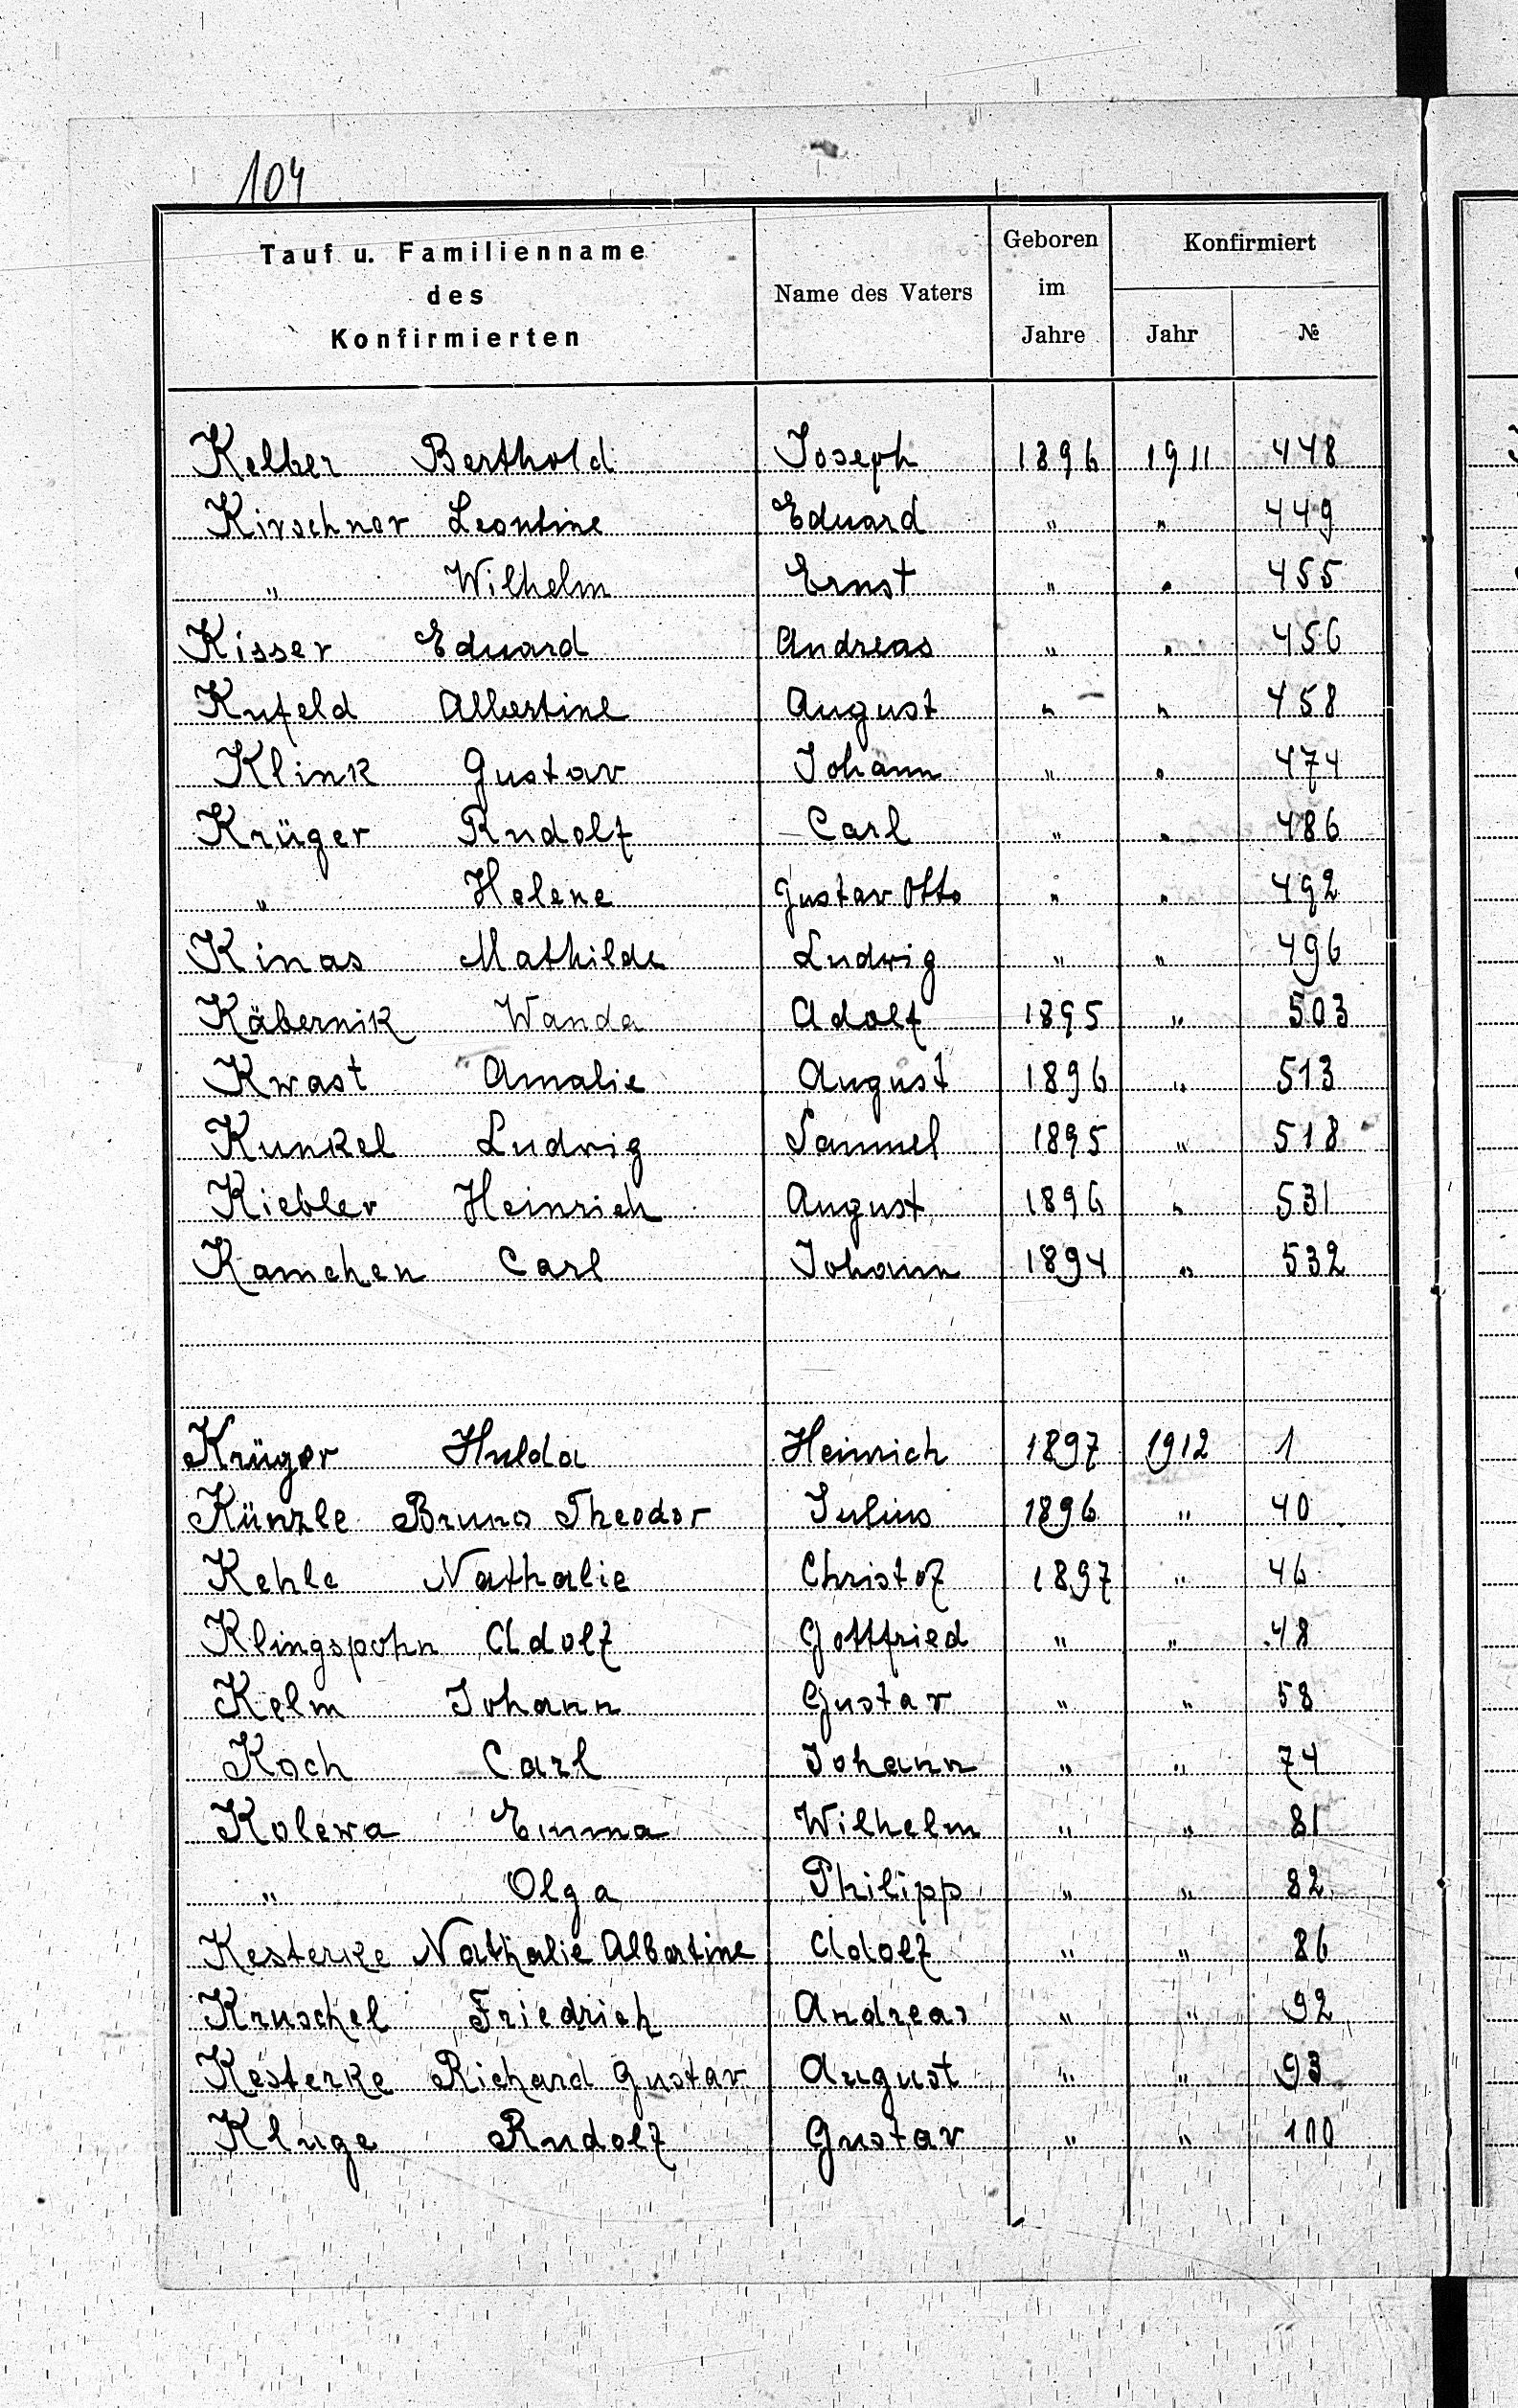 104
Tauf u. Familienname des Konfirmierten | Name des Vaters | Geboren im Jahre | Konfirmiert Jahr | №
Kelber Berthold Joseph 1896 1911 448
Kirschner Leontine Eduard " " 449
" Wilhelm Ernst " " 455
Kisser Eduard Andreas " " 456
Kufeld Albertine August " " 458
Klink Gustav Johann " " 474
Krüger Rudolf Carl " " 486
" Helene Gustav Otto " " 492
Kinas Mathilde Ludwig " " 496
Käbernik Wanda Adolf 1895 " 503
Kwast Amalie August 1896 " 513
Kunkel Ludwig Samuel 1895 " 518
Kiebler Heinrich August 1896 " 531
Kamchen Carl Johann 1894 " 532
Krüger Hulda Heinrich 1897 1912 1
Künzle Bruno Theodor Julius 1896 " 40
Kehle Nathalie Christof 1897 " 46
Klingspohn Adolf Gottfried " " 48
Kelm Johann Gustav " " 58
Koch Carl Johann " " 74
Kolewa Emma Wilhelm " " 81
" Olga Philipp " " 82
Kesterke Nathalie Albertine Adolf " " 86
Kruschel Friedrich Andreas " " 92
Kesterke Richard Gustav August " " 93
Kluge Rudolf Gustav " " 100